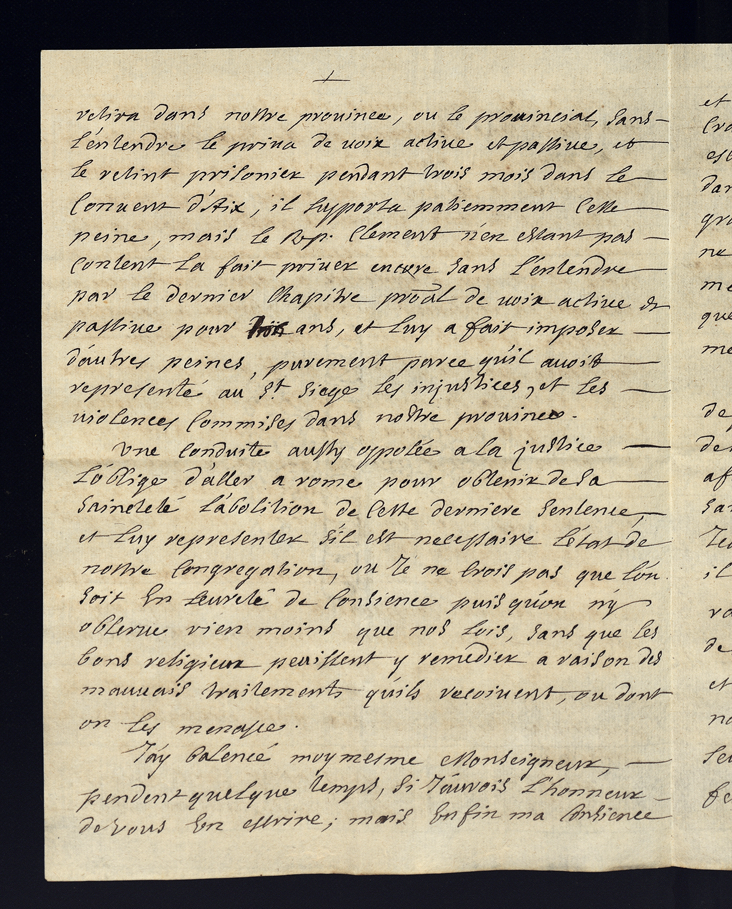 +
retira dans nostre prouince, ou le prouincial, sans
l'entendre le priua de uoix actiue et passiue, et
le retint prisonier pendant trois mois dans le
Conuent d'Aix, il supporta patiemment Cette
peine, mais le R.p. Clement n'en estant pas
Content La fait priuer encore sans l'entendre
par le dernier Chapitre proal de uoix actiue et
passiue pour trois ans, et luy a fait imposer
d'autres peines, purement parce qu'il auoit
representé au St. Siege les injustices, et les
uiolences Commises dans nostre prouince.
Une conduite aussy opposée a la justice
L'oblige d'aller a rome pour obtenir de sa
Sainteté L'abolition de Cette derniere Sentence,
et luy representer s'il est necessaire l'état de
nostre Congregation, ou Je ne Crois pas que l'on
soit En seureté de Consience puisqu'on n'y
obserue rien moins que nos lois, sans que les
bons religieux puissent y remedier a raison des
mauuais traitements qu'ils recoiuent, ou dont
on les menasse.
J'ay balencé moymesme Monseigneur,
pendent quelque temps, si J'auois L'honneur
de vous En escrire; mais Enfin ma Consience
et
Cro
est
dan
gra
ne
me
que
me
de
de
af
sa
Je
il
ro
de
et
no
seu
fe